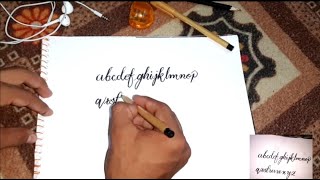 abcdefghijklmnop
qrs
abcdefghijklmnop
qrstuvwxyz